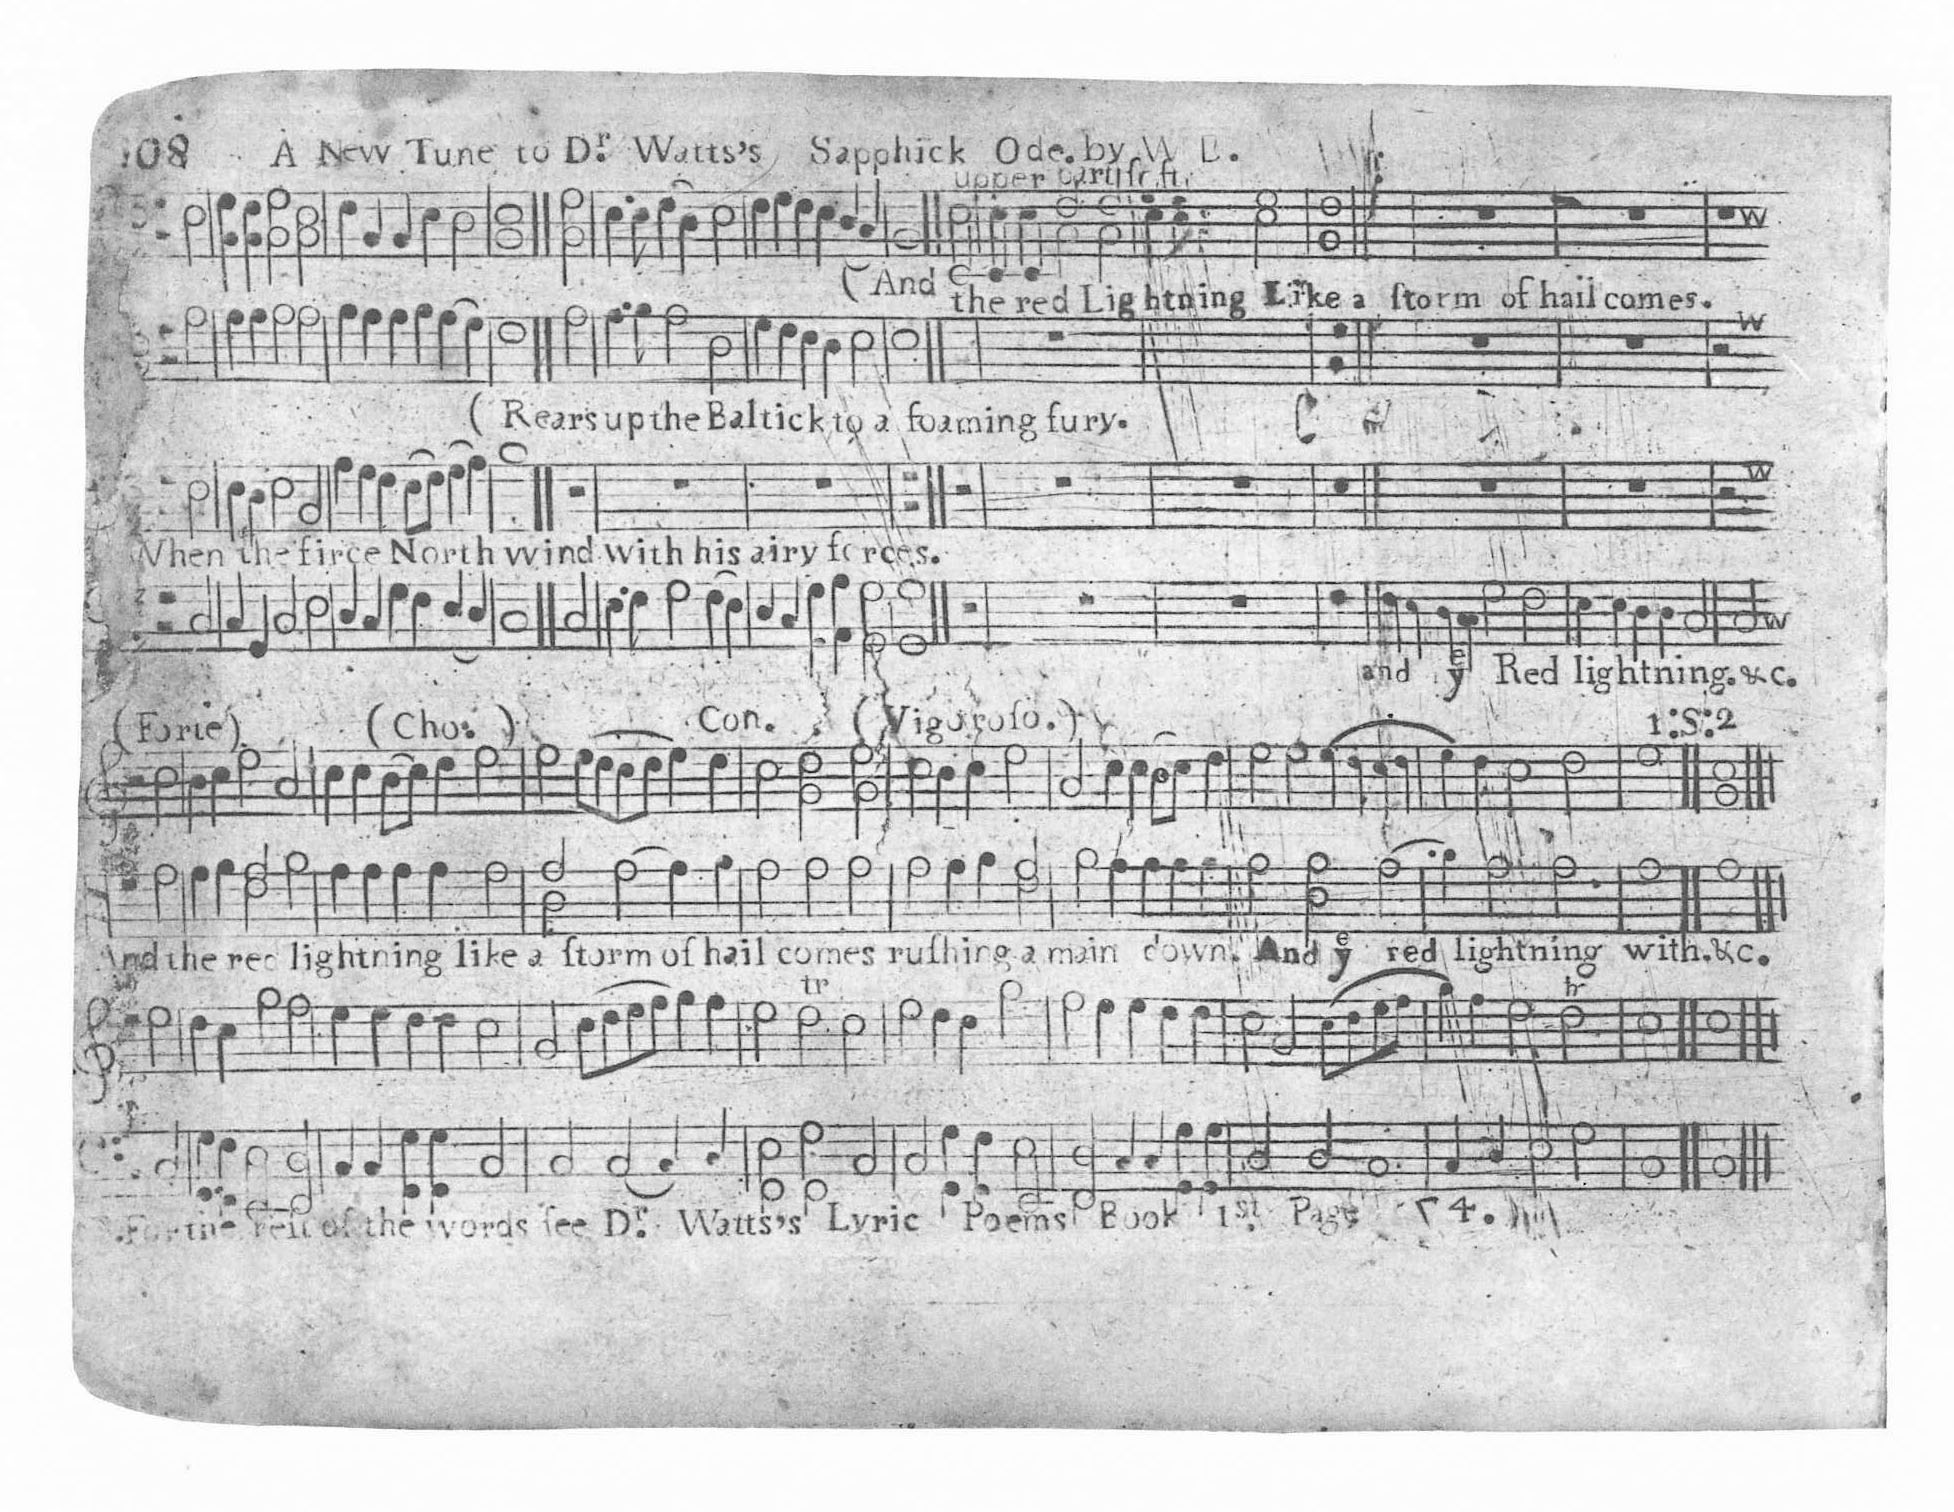 108 A New Tune to Dr. Watts's Sapphick Ode. by W B.
upper part soft
(And the red Lightning Like a ſtorm of hail comes.
(Rears up the Baltick to a foaming fury.
When the firce North wind with his airy forces.
and yͤ Red lightning. &c.
(Forte) (Cho:) Con. (Vigoroſo.) 1:S:2
And the red lightning like a ſtorm of hail comes ruſhing a main down. And yͤ red lightning with. &c.
tr tr
For the reſt of the words ſee Dr. Watts's Lyric Poems Book 1st. Page 74.